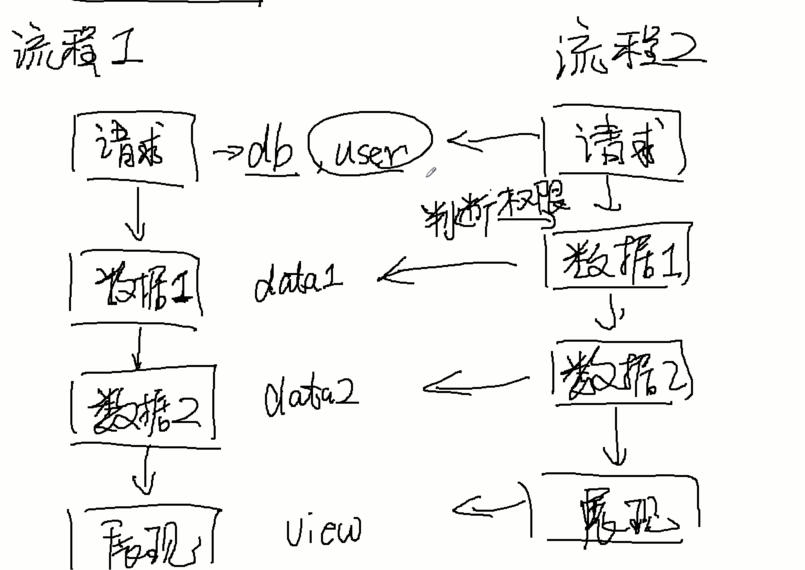 流程1 流程2
请求 → db, user ← 请求
判断权限
数据1 data1 ← 数据1
数据2 data2 ← 数据2
展现 view ← 展现